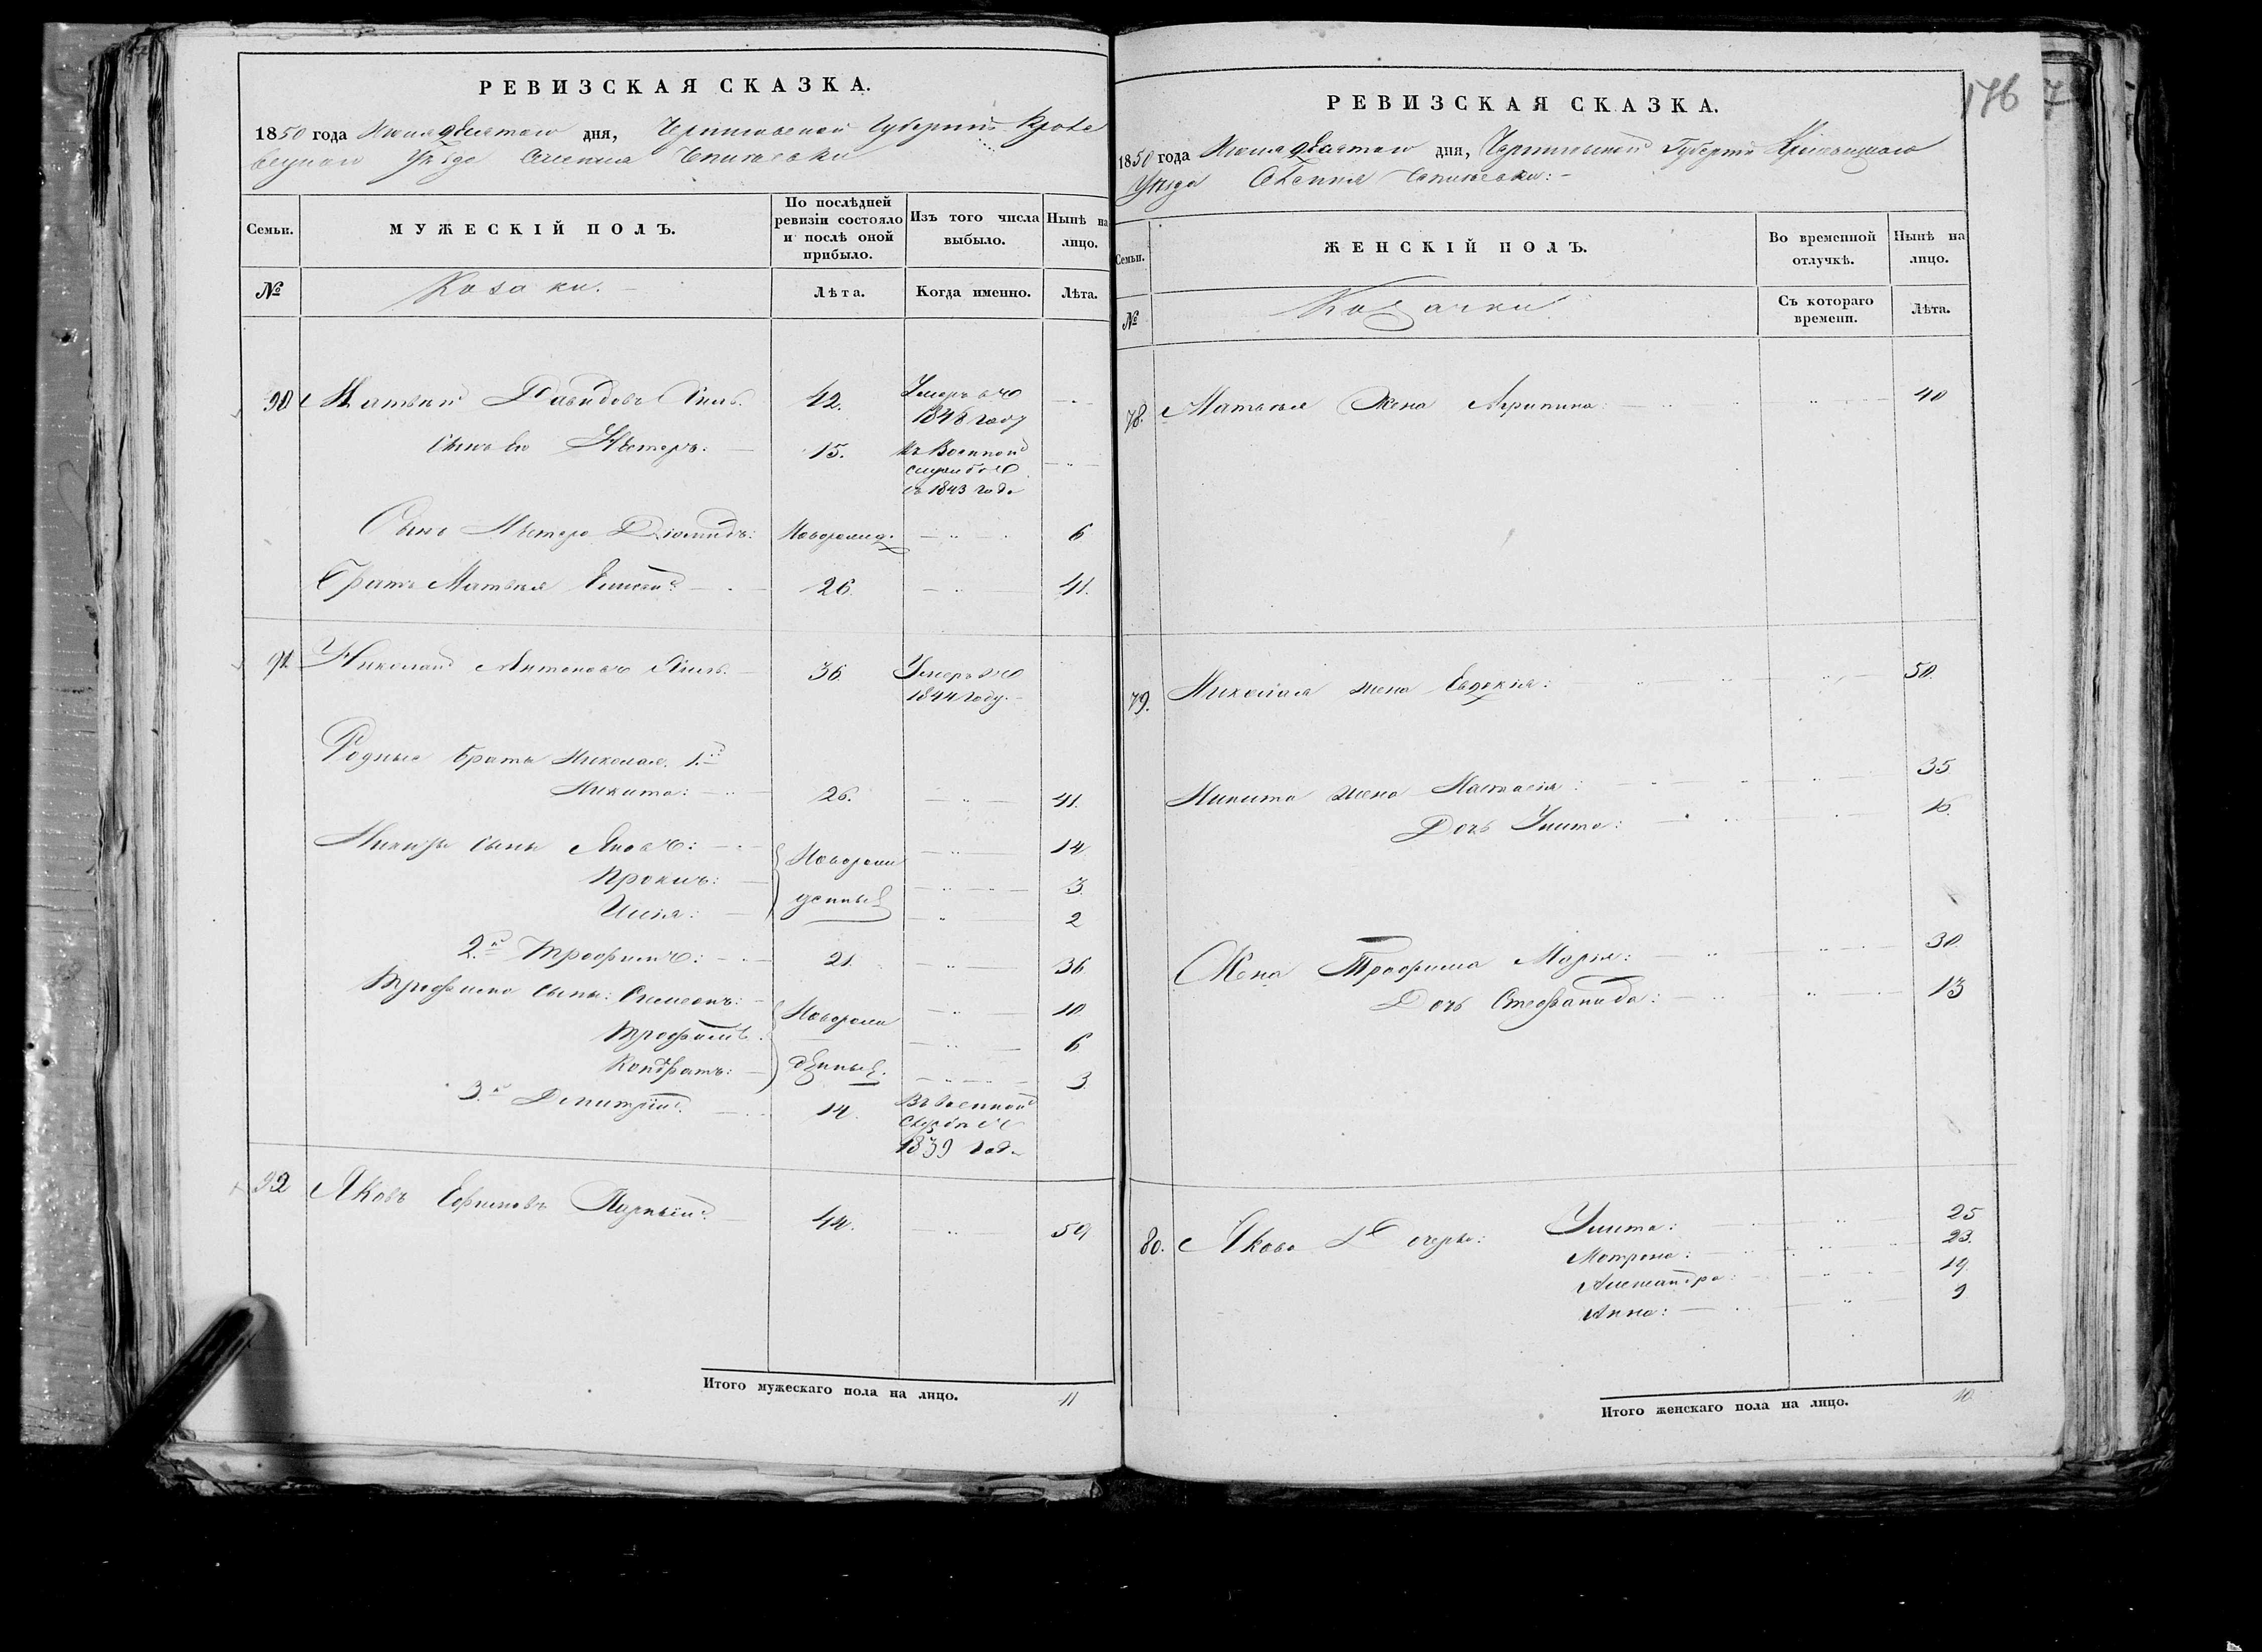 РЕВИЗСКАЯ СКАЗКА.
1850 года дня, Черниговской Губерніи Кроле
вецкаго Уѣзда Селенія
Семьи.
МУЖЕСКІЙ ПОЛЪ.
По послѣдней ревизіи состояло и послѣ оной прибыло.
Изъ того числа выбыло.
Нынѣ на лицо.
№
Козаки.
Лѣта.
Когда именно.
Лѣта.
90 Матвѣй Давидовъ 42. Умеръ въ
1848 году
Сынъ Его Нестеръ: 15. Въ Военной
службѣ
съ 1843 года
Сынъ Нестера Діомидъ: Новорожд. 6
Братъ Матвѣя Елисей 26. 41.
91. Николай Антоновъ 36. Умеръ въ
1844 году.
Родные братья Николая. 1.й
Никита: 26. 41.
Никиты сыны Яковъ: Новорож 14
Прокипъ: 3.
Илія: денные 2
2.й Трофимъ: 21. 36
Трофима сыны: Симеонъ: Новорож 10
Трофимъ. 6
Кондратъ: денные. 3.
3.й Дмитрій. 14. Въ военной
службѣ съ
1839 года
92 Яковъ Ефимовъ 44. 59
Итого мужескаго пола на лицо. 11
176
РЕВИЗСКАЯ СКАЗКА.
1850 года дня, Черниговской Губерніи Кролевецкаго
Уѣзда Селенія
Семьи.
ЖЕНСКІЙ ПОЛЪ.
Во временной отлучкѣ.
Нынѣ на лицо.
№
Козачки
Съ котораго времени.
Лѣта.
78. Матвѣя Жена Агрипина 40
79. Николая жена Евдокія: 50.
Никиты жена Настасія: 35
Дочь Улита: 16.
Жена Трофима Марія: 30.
Дочь Стефанида: 13
80. Якова Дочери: Улита: 25
Мотрона: 23.
Александра: 19.
Анна: 9
Итого женскаго пола на лицо. 10.